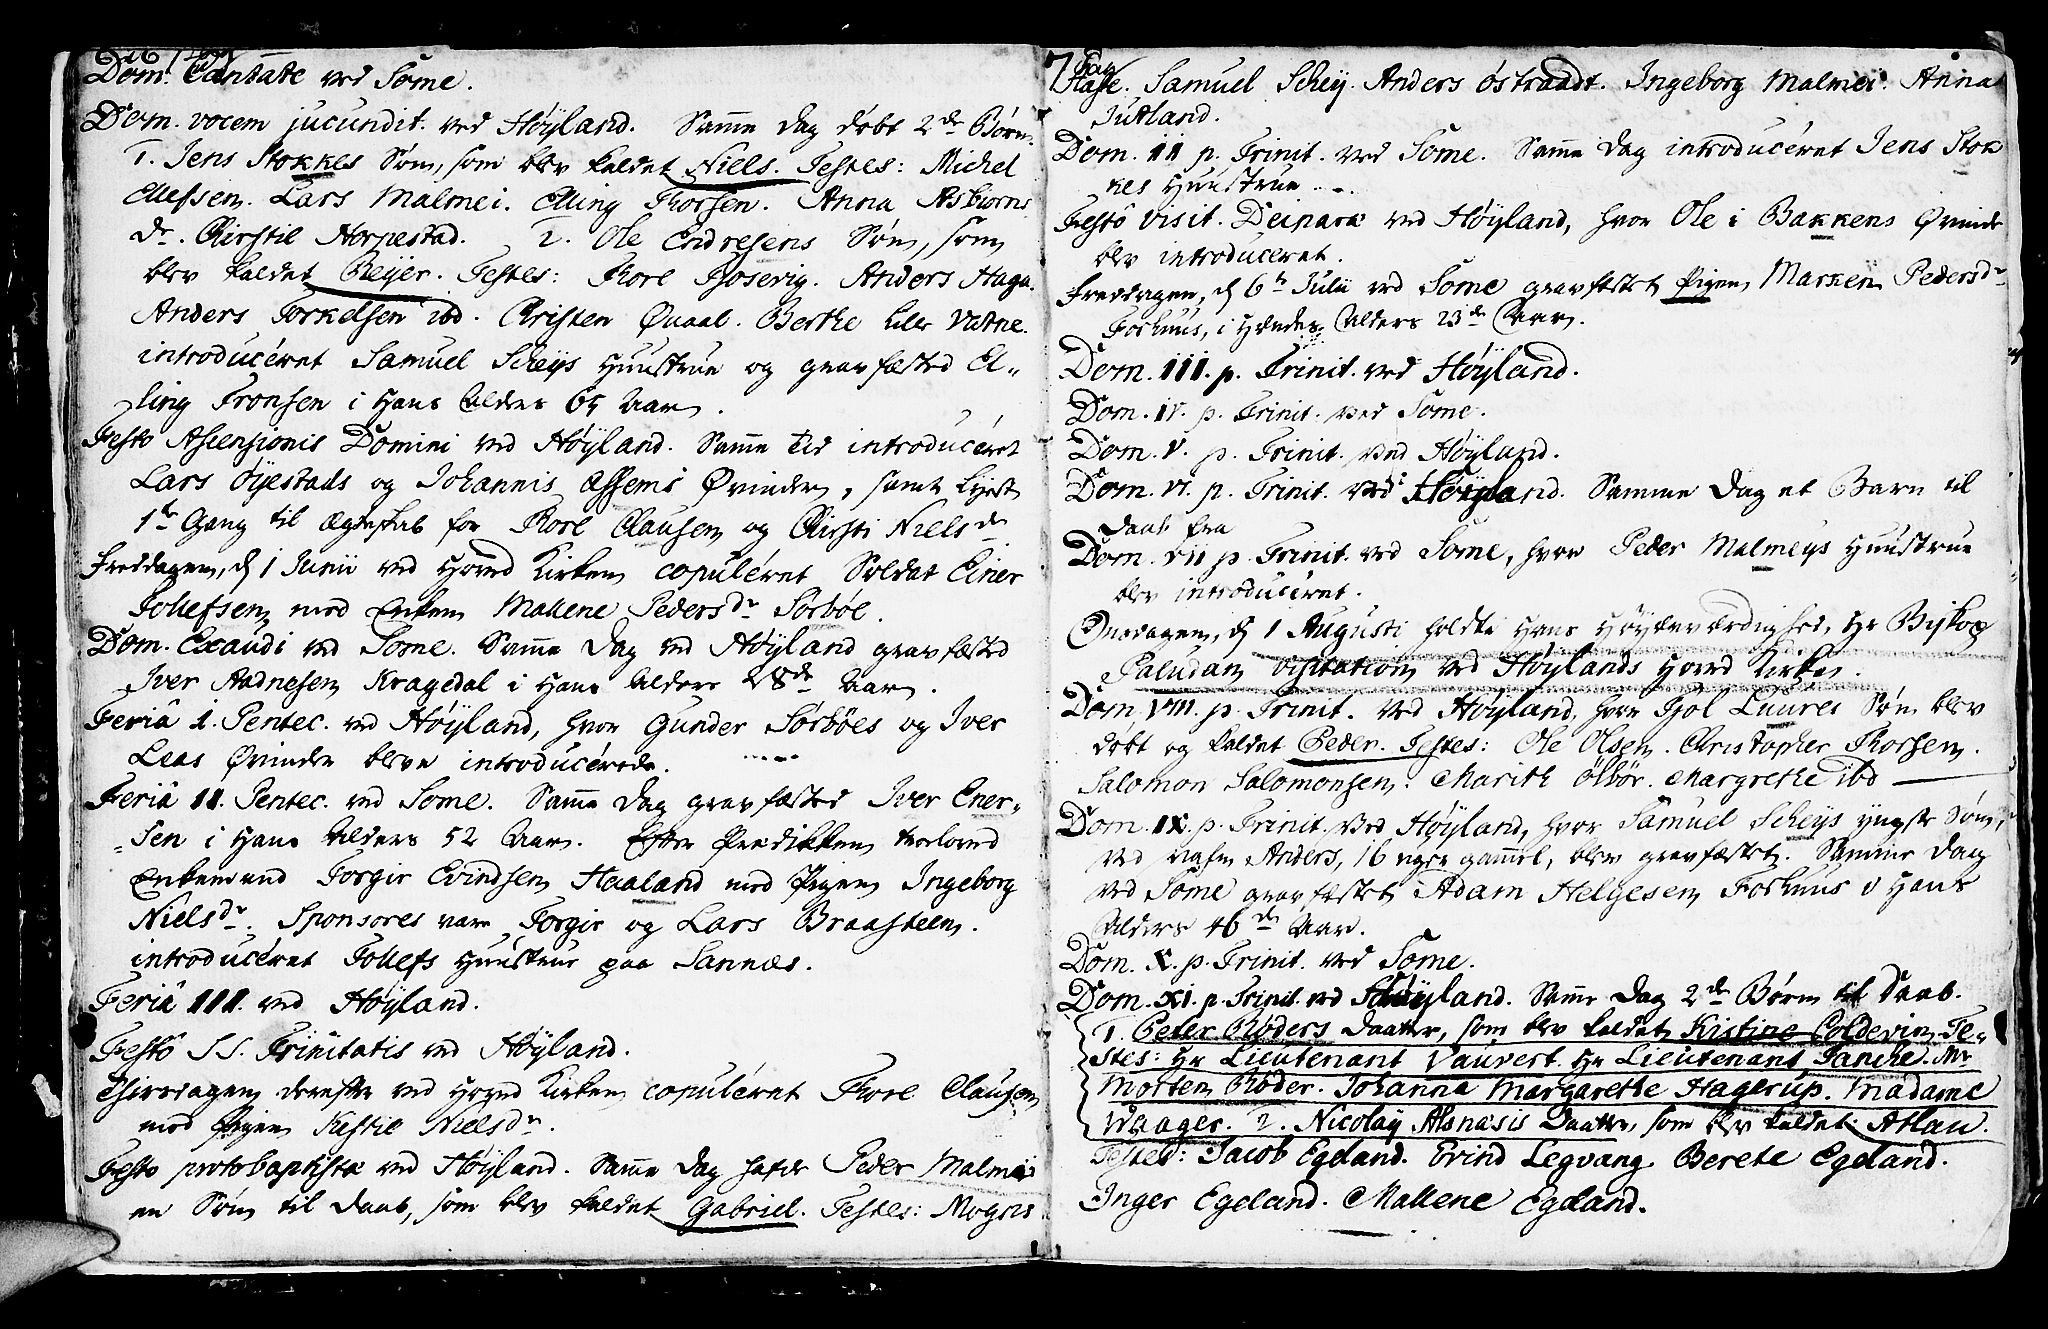 Dom. Cantate ved Some.
Dom. vocem jucundit. ved Høyland. Samme dag døbt 2de Børn.
1. Jens Stokkes Søn, som blev kaldet Niels. Testes: Michel
Ellefsen. Lars Malmei. Elling Thorsen. Anna Asbiorns
dr. Chirstie Horpestad. 2. Ole Endresens Søn, som
blev kaldet Reijer. Testes: Thore Giosevig. Anders Haga.
Anders Torkelsen ibd. Christen Qvaal. Berthe lille Vatne.
introduceret Samuel Scheys Huustrue og gravfæsted El„
ling Tronsen i Hans Alders 65 Aar.
Festo Ascensionis Domini ved Høyland. Samme tid introduceret
Lars Øyestads og Johannis Assems Qvinder, samt lyst
1te Gang til Ægteskab for Thore Clausen og Chirsti Nielsdr
Fredagen, d 1 Junii ved Hoved Kirken copuleret Soldat Einer
Tollefsen med Enken Mallene Pedersdr Sørbøe.
Dom. Exaudi ved Some. Samme Dag ved Høyland gravfæsted
Iver Aadnesen Kragedal i Hans Alders 28de Aar.
Feriâ 1. Pentec. ved Høyland, hvor Gunder Sørbøes og Iver
Leas Qvinder bleve introducerede.
Feriâ II. Pentec. ved Some. Samme Dag gravfæsted Iver Ener„
„sen i Hans Alders 52 Aar. Efter Prædikken troloved
Enkemand Torgir Evindsen Haaland med Pigen Ingeborg
Nielsdr. Sponsores vare Torgir og Lars Braasteen.
introduceret Tollefs Huustrue paa Sannæs.
Feriâ III. ved Høyland.
Festô S.S. Trinitatis ved Høyland.
Thirsdagen derefter ved Hoved Kirken copuleret Thore Clausen
med Pigen Kirstie Nielsdr.
Festo protobaptistæ ved Høyland. Samme Dag hafde Peder Malmeis
en Søn til Daab, som blev kaldet Gabriel. Testes: Mogens
7
Stage. Samuel Schey. Anders Østraadt. Ingeborg Malmei. Anna
Jutland.
Dom. II p. Trinit. ved Some. Samme Dag introduceret Jens Stok
kes Huustrue
Festô visit. Deiparæ ved Høyland, hvor Ole i Bakkens Qvinde
blev introduceret.
Fredagen, d 6te Julii ved Some gravfæstet Pigen Marken Pedersdr
Foshuus, i Hendes Alders 23de Aar.
Dom. III. p. Trinit. ved Høyland.
Dom. IV. p. Trinit. ved Some.
Dom. V. p. Trinit. ved Høyland.
Dom. VI. p. Trinit. ved Høyland. Samme Dag et Barn til
Daab fra
Dom. VII p. Trinit. ved Some, hvor Peder Malmeys Huustrue
blev introduceret.
Onsdagen, d 1 Augusti holdte Hans Høyærværdighed, Hr Biskop
Paludan visitation ved Høylands Hoved Kirke.
Dom. VIII. p. Trinit. ved Høyland, hvor Giol Luures Søn blev
døbt og kaldet Peder. Testes: Ole Olsen. Christopher Thorsen.
Salomon Salomonsen. Marith Ølbør. Margrethe ibd
Dom. IX. p. Trinit. ved Høyland, hvor Samuel Scheys yngste Søn,
ved Nafn Anders, 16 uger gammel, blev gravfæstet. Samme Dag
ved Some gravfæstet Adam Helgesen Foshuus i Hans
Alders 46de Aar.
Dom. X. p. Trinit. ved Some.
Dom. XI. p. Trinit. ved Høyland. Samme Dag 2de Børn til Daab.
1. Peter Røders Daatter, som blev kaldet Kristine Coldevin. Te„
stes: Hr Lieutenant Vauvert. Hr Lieutenant Tanche. Mr
Morten Røder. Johanna Margarethe Hagerup. Madame
Waager. 2. Nicolay Alsnæsis Daatter, som blev kaldet Atlau.
Testes: Jacob Egeland. Evind Legvang. Berete Egeland.
Inger Egeland. Mallene Egeland.